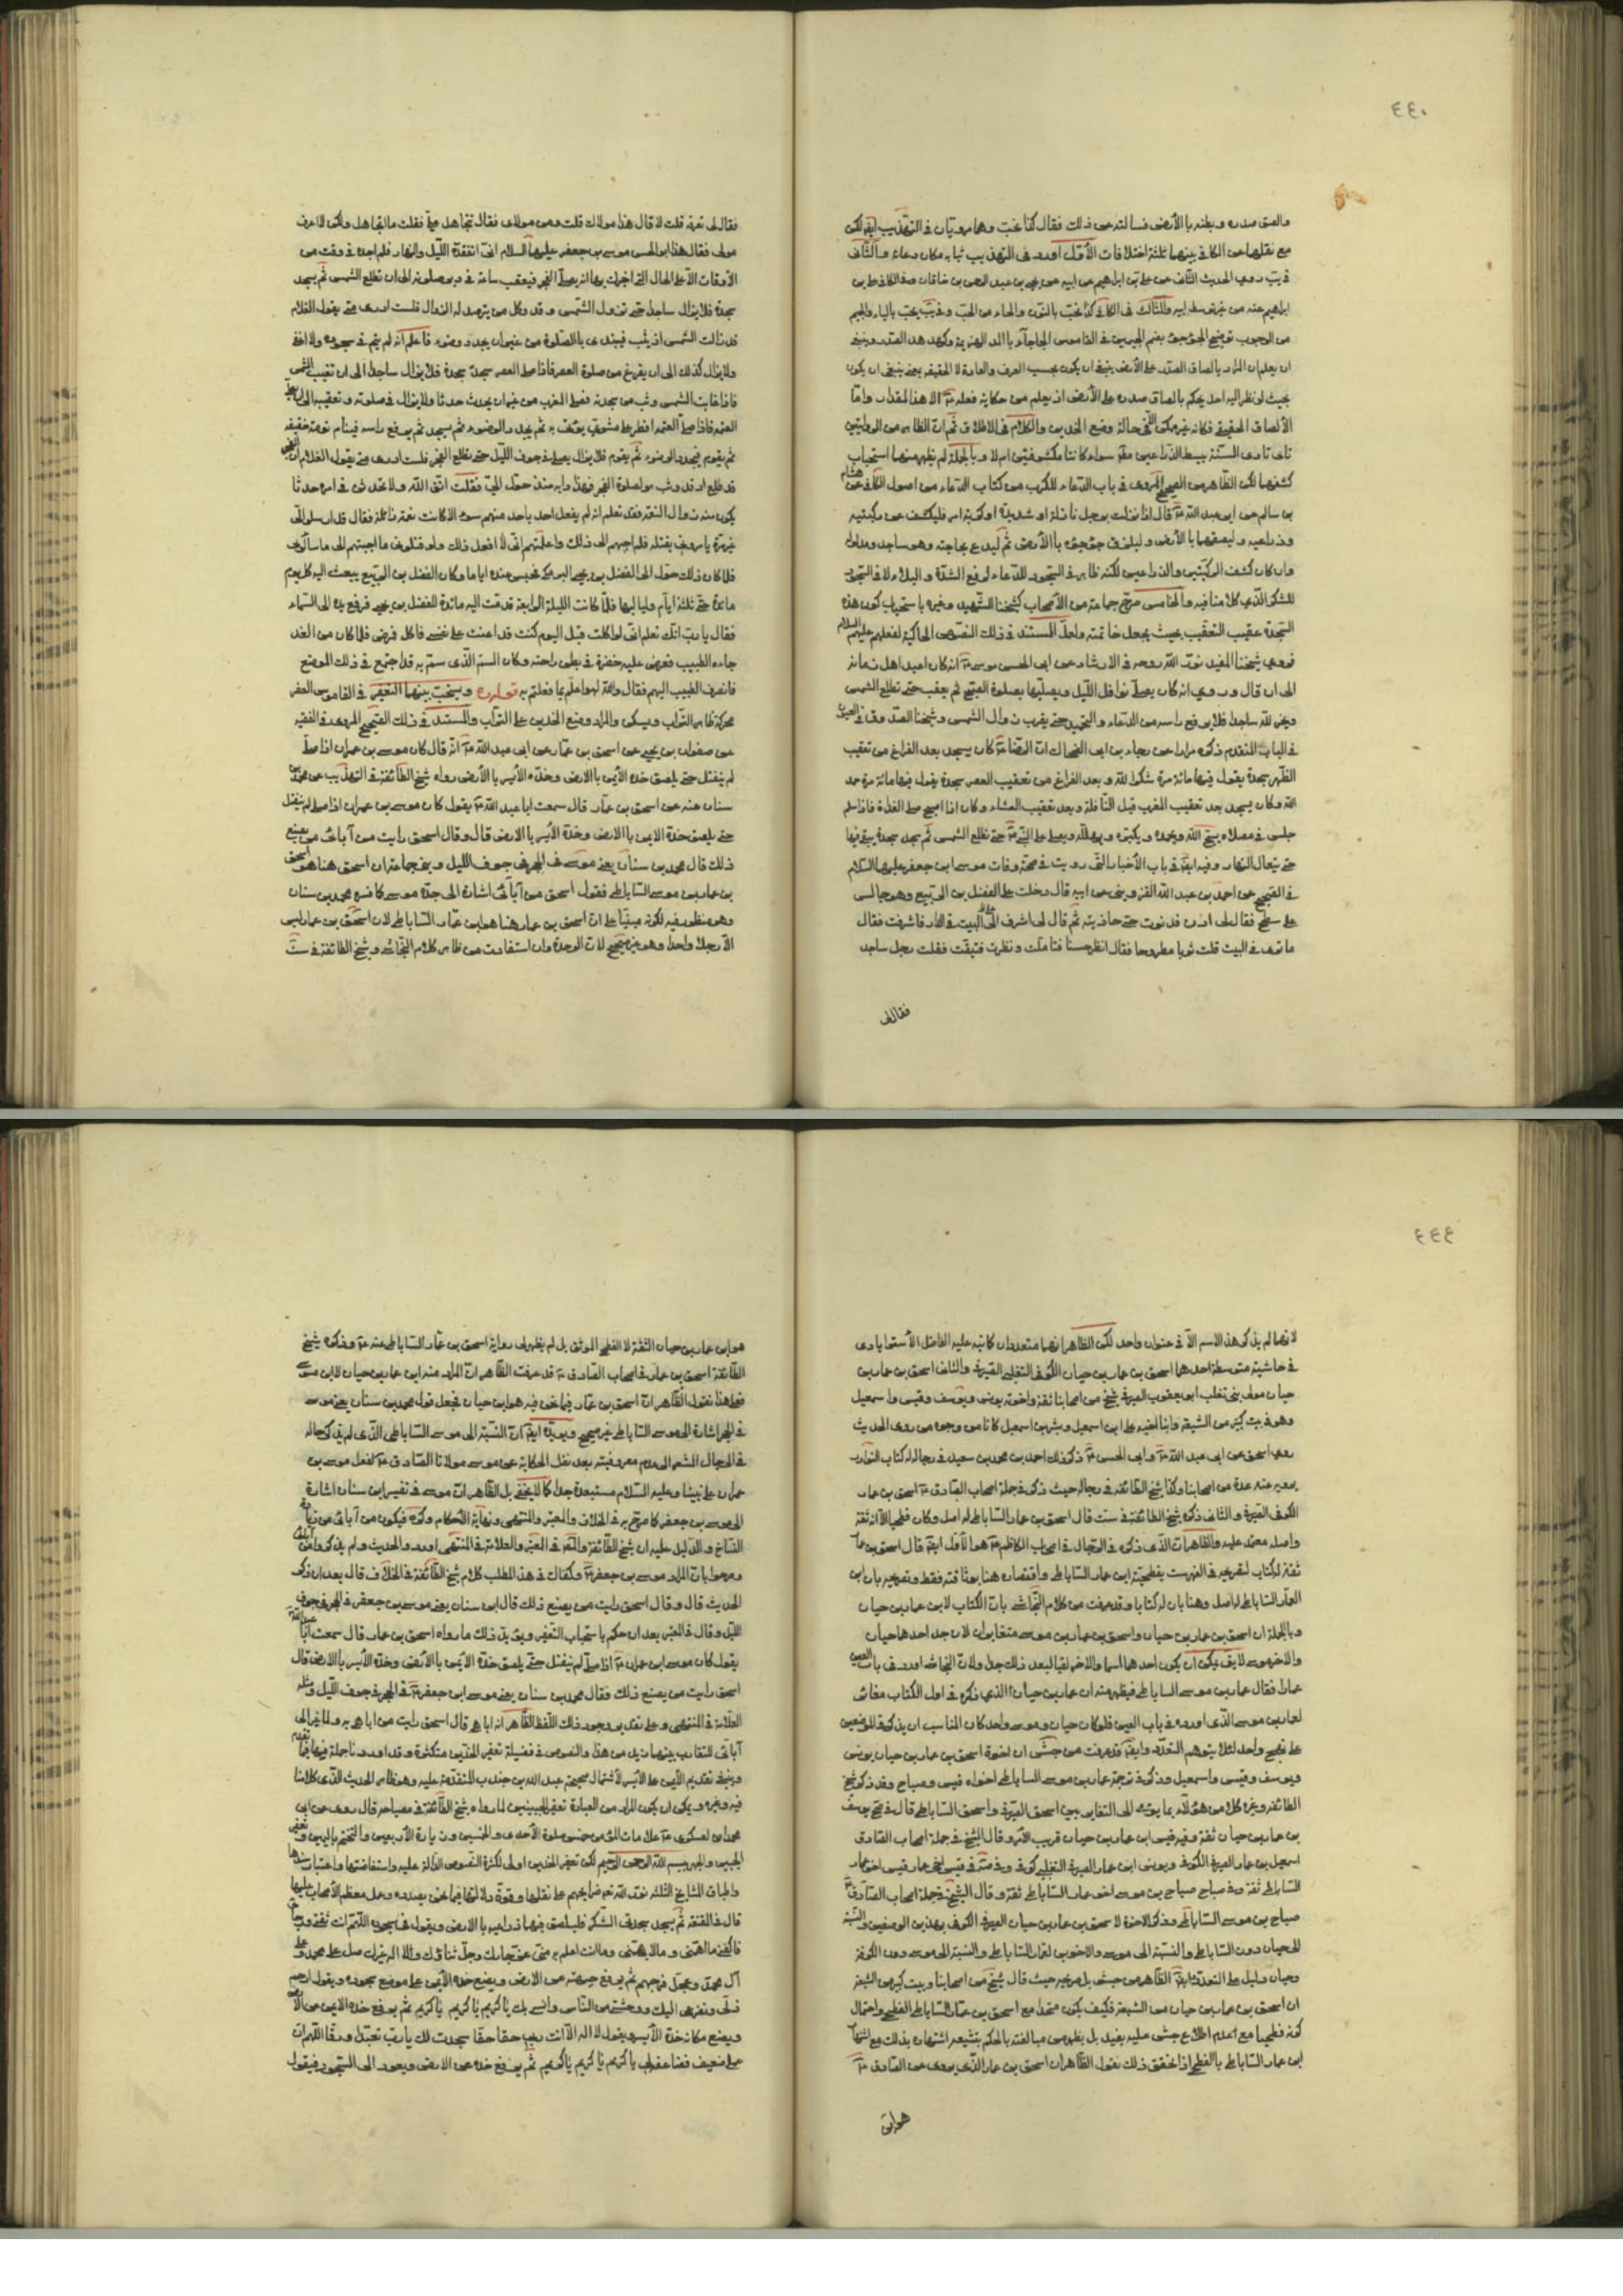 ٤٤٠
والصق صدره وبطنه بالأرض فسالته عن ذلك فقال كذا نحب وهما مرويان فى التهذيب ايضا لكن
مع نقلهما عن الكافى بينهما ثلثة اختلافات الأول اورد فى التهذيب ثيابه مكان دعاء والثانى
روى الحديث الثانى عن على بن ابراهيم عن ابيه عن يحيى بن عبد الرحمن بن خاقان وفى الكافى على بن
ابراهيم عنه من غير توسط ابيه والثالث فى الكافى كذا نحب بالنون والحاء من الحب وفى يب يجب بالياء والجيم
من الوجوب توضيح الجؤجؤ بضم الجيمين فى القاموس الصدر
ان يعلم ان المراد بالصاق الصدر على الأرض ينبغى ان يكون بحسب العرف والعادة لا الحقيقى بمعنى ينبغى ان يكون
بحيث لو نظر اليه احد يحكم بالصاق صدره على الأرض اذ يعلم من حكاية فعله الا هذا المقدار واما
الألصاق الحقيقى فكانه غير ممكن فى حالة وضع الخدين والكلام فى الاطلاق ثم ان الظاهر من الروايتين
تادى السنة ببسط الذراعين مطلقا سواء كانتا مكشوفتين ام لا وبالجملة لم يظهر منهما استحباب
كشفهما لكن الظاهر من الصحيح المروى فى باب الدعاء للكرب من كتاب الدعاء من اصول الكافى عن هشام
بن سالم عن ابى عبد الله قال اذا نزلت برجل نازلة او شديدة او كربة امر فليكشف عن ركبتيه
وذراعيه وليلصقهما بالأرض وليلزق جؤجؤه بالأرض ثم ليدع بحاجته وهو ساجد ومدلوله
وان كان كشف الركبتين والذراعين لكنه ظاهر فى السجود للدعاء لرفع الشدة والبلاء لا فى السجود
للشكر الذى كلامنا فيه والخامس صرح جماعة من الأصحاب كشيخنا الشهيد وغيره باستحباب كون هذه
السجدة عقيب التعقيب بحيث يجعل خاتمته ولعل المستند فى ذلك النصوص الحاكية لفعلهم عليهم السلام
فروى شيخنا المفيد نور الله روحه فى الارشاد عن ابى الحسن موسى انه كان اعبد اهل زمانه
الى ان قال وروى انه كان يصلى نوافل الليل ويصليها بصلوة الصبح ثم يعقب حتى تطلع الشمس
ويخر لله ساجدا فلا يرفع راسه من الدعاء والتحميد حتى يقرب زوال الشمس وشيخنا الصدوق فى العيون
فى الباب المتقدم ذكره مرارا عن رجاء بن ابى الضحاك ان الرضا كان يسجد بعد الفراغ من تعقيب
الظهر سجدة يقول فيها مائة مرة شكرا لله وبعد الفراغ من تعقيب العصر سجدة يقول فيها مائة مرة حمد
الله وكان يسجد بعد تعقيب المغرب قبل النافلة وبعد تعقيب العشاء وكان اذا اصبح صلى الغداة فاذا سلم
جلس فى مصلاه يسبح الله ويحمده ويكبره ويهلله ويصلى على النبى حتى تطلع الشمس ثم يسجد سجدة يبقى فيها
حتى يتعالى النهار وفيه ايضا فى باب الأخبار التى رويت فى صحة وفات موسى ابن جعفر عليهما السلام
فى الصحيح عن احمد بن عبد الله القزوينى عن ابيه قال دخلت على الفضل بن الربيع وهو جالس
على سطح فقال لى ادن فدنوت حتى حاذيته ثم قال لى اشرف الى البيت فى الدار فاشرفت فقال
ما ترى فى البيت قلت ثوبا مطروحا فقال انظر حسنا فتاملت ونظرت فتيقنت فقلت رجل ساجد
فقال لى
فقال لى تعرفه قلت لا قال هذا مولاك قلت ومن مولاى فقال تتجاهل على فقلت ما اتجاهل ولكن لا اعرف
مولى فقال هذا ابو الحسن موسى بن جعفر عليهما السلام انى اتفقده الليل والنهار فلم اجده فى وقت من
الأوقات الا على الحال التى اخبرك بها انه يصلى الفجر فيعقب ساعة فى دبر صلوته الى ان تطلع الشمس ثم يسجد
سجدة فلا يزال ساجدا حتى تزول الشمس وقد وكل من يترصد له الزوال فلست ادرى متى يقول الغلام
قد زالت الشمس اذ يثب فيبتدى بالصلوة من غير ان يجدد وضوء فاعلم انه لم ينم فى سجوده ولا اغفى
ولا يزال كذلك الى ان يفرغ من صلوة العصر فاذا صلى العصر سجد سجدة فلا يزال ساجدا الى ان تغيب الشمس
فاذا غابت الشمس وثب من سجدته فصلى المغرب من غير ان يحدث حدثا ولا يزال فى صلوته وتعقيبه الى ان يصلى
العتمة فاذا صلى العتمة افطر على مشوى يؤتى به ثم يجدد الوضوء ثم يسجد ثم يرفع راسه فينام نومة خفيفة
ثم يقوم فيجدد الوضوء ثم يقوم فلا يزال يصلى فى جوف الليل حتى يطلع الفجر فلست ادرى متى يقول الغلام ان الفجر
قد طلع اذ قد وثب هو لصلوة الفجر فهذا دابه منذ حول الى فقلت اتق الله ولا تحدثن فى امره حدثا
يكون منه زوال النعمة فقد تعلم انه لم يفعل احد باحد منهم سوء الا كانت نعمته زائلة فقال قد ارسلوا الى
غير مرة يامرونى بقتله فلم اجبهم الى ذلك واعلمتهم انى لا افعل ذلك ولو قتلونى ما اجبتهم الى ما سألونى
فلما كان ذلك حول الى الفضل بن يحيى البرمكى فحبس عنده اياما وكان الفضل بن الربيع يبعث اليه كل يوم
مائدة حتى ثلثة ايام ولياليها فلما كانت الليلة الرابعة قدمت اليه مائدة للفضل بن يحيى فرفع يده الى السماء
فقال يا رب انك تعلم انى لو اكلت قبل اليوم كنت قد اعنت على نفسى فاكل فمرض فلما كان من الغد
جاءه الطبيب فعرض عليه خضرة فى بطن راحته وكان السم الذى سم به قد اجتمع فى ذلك الموضع
فانصرف الطبيب اليهم فقال والله لهو اعلم بما فعلتم به قوله ويستحب بينهما التعفير فى القاموس العفر
محركة ظاهر التراب ويسكن والمراد وضع الخدين على التراب والمستند فى ذلك الصحيح المروى فى الفقيه
عن صفوان بن يحيى عن اسحق بن عمار عن ابى عبد الله انه قال كان موسى بن عمران اذا صلى
لم ينفتل حتى يلصق خده الأيمن بالارض وخده الأيسر بالأرض رواه شيخ الطائفة فى التهذيب عن محمد بن
سنان عنه عن اسحق بن عمار قال سمعت ابا عبد الله يقول كان موسى بن عمران اذا صلى لم ينفتل
حتى يلصق خده الايمن بالارض وخده الأيسر بالارض قال وقال اسحق رايت من آبائى من يصنع
ذلك قال محمد بن سنان يعنى موسى فى الحجر فى جوف الليل اسحق هنا هو اسحق
بن عمار بن موسى الساباطى فقول اسحق من آبائى اشارة الى جده موسى كما فسره محمد بن سنان
وهو منظور فيه لكونه مبنيا على ان اسحق بن عمار هنا هو ابن عمار الساباطى لان اسحق بن عمار ليس
الا رجلا واحدا وهو غير صحيح لان الوحدة وان استفادت من ظاهر كلام النجاشى وشيخ الطائفة فى ست
٤٤٤
لانهما لم يذكر هذا الاسم الا فى عنوان واحد لكن الظاهر انهما متعددان كما نبه عليه الفاضل الأسترابادى
فى حاشية متوسطة احدهما اسحق بن عمار بن حيان الكوفى التغلبى الصيرفى والثانى اسحق بن عمار بن
حيان مولى بنى تغلب ابو يعقوب الصيرفى شيخ من اصحابنا ثقة واخوته يونس ويوسف وقيس واسمعيل
وهو فى بيت كبير من الشيعة وابنا اخيه على ابن اسمعيل وبشر بن اسمعيل كانا من وجوه من روى الحديث
روى اسحق عن ابى عبد الله وابى الحسن ذكر ذلك احمد بن محمد بن سعيد فى رجاله له كتاب النوادر
يرويه عنه عدة من اصحابنا وكذا شيخ الطائفة فى رجاله حيث ذكر فى جملة اصحاب الصادق اسحق بن عمار
الكوفى الصيرفى والثانى ذكره شيخ الطائفة فى ست قال اسحق بن عمار الساباطى له اصل وكان فطحيا الا انه ثقة
واصله معتمد عليه والظاهر ان الذى ذكره فى الرجال فى اصحاب الكاظم هو الأول ايضا قال اسحق بن عمار
ثقة له كتاب لتصريحه فى الفهرست بفطحية ابن عمار الساباطى واقتصاره هنا بوثاقته فقط وتصريحه بان ابن
العمار الساباطى له اصل وهنا بان له كتابا وقد عرفت من كلام النجاشى بان الكتاب لابن عمار بن حيان
وبالجملة ان اسحق بن عمار بن حيان واسحق بن عمار بن موسى متغايران لان جد احدهما حيان
والآخر موسى لا يقال يمكن ان يكون احدهما اسما والاخر لقبا لبعد ذلك جدا ولان النجاشى اورد فى باب العين
عمارا فقال عمار بن موسى الساباطى فيظهر منه ان عمار بن حيان الذى ذكره فى اول الكتاب مغاير
لعمار بن موسى الذى اورده فى باب العين فلو كان حيان وموسى واحد كان المناسب ان يذكر فى الموضعين
على نهج واحد لئلا يتوهم التعدد وايضا قد عرفت من جش ان اخوة اسحق بن عمار بن حيان يونس
ويوسف وقيس واسمعيل وذكر فى ترجمة عمار بن موسى الساباطى اخواه قيس وصباح وقد ذكر شيخ
الطائفة وغيره كلا من هؤلاء بما يؤمى الى التغاير بين اسحق الصيرفى واسحق الساباطى قال يوسف
بن عمار بن حيان ثقة وفيه قيس ابن عمار بن حيان قريب الأمر وقال الشيخ فى جملة اصحاب الصادق
اسمعيل بن عمار الصيرفى الكوفى ويونس ابن عمار الصيرفى التغلبى كوفى قيس اخى عمار قيس اخو عمار
الساباطى ثقة وفى صباح صباح بن موسى اخو عمار الساباطى ثقة وقال الشيخ فى جملة اصحاب الصادق
صباح بن موسى الساباطى وذكر الاخوة لاسحق بن عمار بن حيان الصيرفى الكوفى بهذين الوصفين والنسبة
الى حيان دون الساباطى والنسبة الى موسى والاخوين لعمار الساباطى والنسبة الى موسى دون الكوفى
وحيان دليل على التعدد ايضا الظاهر من جش بل صريحه حيث قال شيخ من اصحابنا وبيت كبير من الشيعة
ان اسحق بن عمار بن حيان من الشيعة فكيف يكون متحدا مع اسحق بن عمار الساباطى الفطحى واحتمال
كونه فطحيا مع عدم اطلاع جش عليه بعيد بل يظهر من مبالغته بالحكم بتشيعه اشتهاره بذلك مع اشتهار
ابن عمار الساباطى بالفطحى اذا تحقق ذلك نقول الظاهر ان اسحق بن عمار الذى يروى عن الصادق
هو ابن
هو ابن عمار بن حيان الثقة لا الفطحى الموثق بل لم يظهر لى رواية اسحق بن عمار الساباطى عنه وذكره شيخ
الطائفة اسحق بن عمار فى اصحاب الصادق قد عرفت الظاهر ان المراد منه ابن عمار بن حيان لا ابن موسى
فعلى هذا نقول الظاهر ان اسحق بن عمار فيما نحن فيه هو ابن حيان فجعل قول محمد بن سنان يعنى موسى
فى الحجر اشارة الى موسى الساباطى غير صحيح ويؤيده ايضا ان النسبة الى موسى الساباطى الذى لم يذكر حاله
فى الرجال المشعر الى عدم معروفيته بعد نقل الحكاية عن موسى مولانا الصادق لفعل موسى بن
عمران على نبينا وعليه السلام مستبعدة جدا كما لا يخفى بل الظاهر ان موسى فى تفسير ابن سنان اشارة
الى موسى بن جعفر كما صرح به فى الخلاف والمعتبر والمنتهى ونهاية الأحكام وكرى فيكون من آبائى من
النساخ والدليل عليه ان شيخ الطائفة والمحقق فى المعتبر والعلامة فى المنتهى اوردوا الحديث ولم يذكروا من آبائى
وصرحوا بان المراد موسى بن جعفر وكفاك فى هذا المطلب كلام شيخ الطائفة فى الخلاف قال بعد ان ذكر
الحديث قال وقال اسحق رايت من يصنع ذلك قال ابن سنان يعنى موسى بن جعفر فى الحجر فى جوف
الليل وقال فى المعتبر بعد ان حكم باستحباب التعفير ويؤيد ذلك ما رواه اسحق بن عمار قال سمعت ابا عبد الله
يقول كان موسى ابن عمران اذا صلى لم ينفتل حتى يلصق خده الأيمن بالأرض وخده الأيسر بالارض قال
اسحق رايت من يصنع ذلك فقال محمد بن سنان يعنى موسى ابن جعفر فى الحجر فى جوف الليل ومثله
العلامة فى المنتهى وعلى تقدير وجود ذلك اللفظ الظاهر انه قال اسحق رايت من
آبائى للتقارب بينهما من هذا والنصوص فى فضيلة تعفير الخدين متكثرة وقد اوردنا جملة منها فيما تقدم
وينبغى تقديم الأيمن على الأيسر لأشتمال صحيحة عبد الله بن جندب المتقدمة عليه وهو ظاهر الحديث الذى كلامنا
فيه وغيره ويمكن ان يكون المراد من العبارة تعفير الجبينين لما رواه شيخ الطائفة فى مصباحه قال روى عن ابى
محمد العسكرى علامات المؤمن خمس صلوة الأحدى والخمسين وزيارة الأربعين والتختم باليمين وتعفير
الجبين والجهر ببسم الله الرحمن الرحيم لكن تعفير الخدين اولى لكثرة النصوص الدالة عليه واستفاضتها واعتبار سندها
واطباق المشايخ الثلثة نور الله تعالى ضرايحهم على نقلها وقوة دلالتها فيما نحن بصدده وعمل معظم الأصحاب عليها
قال فى المقنعة ثم يسجد سجدتى الشكر فليلصق فيهما ذراعيه بالارض ويقول فى سجوده اللهم انت ثقتى ورجائى
فاكفنى ما اهمنى وما لا يهمنى وما انت اعلم به منى عز جارك وجل ثناؤك ولا اله غيرك صل على محمد وعلى
آل محمد وعجل فرجهم ثم يرفع جبهته من الارض ويضع خده الأيمن على موضع سجوده ويقول ارحم
ذلى وتضرعى اليك ووحشتى من الناس وانسى بك يا كريم يا كريم يا كريم ثم يرفع خده الايمن من الأرض
ويضع مكانه خده الأيسر ويقول لا اله الا انت ربى حقا حقا سجدت لك يا رب تعبدا ورقا اللهم ان
عملى ضعيف فضاعفه لى يا كريم يا كريم يا كريم ثم يرفع خده عن الارض ويعود الى السجود فيقول